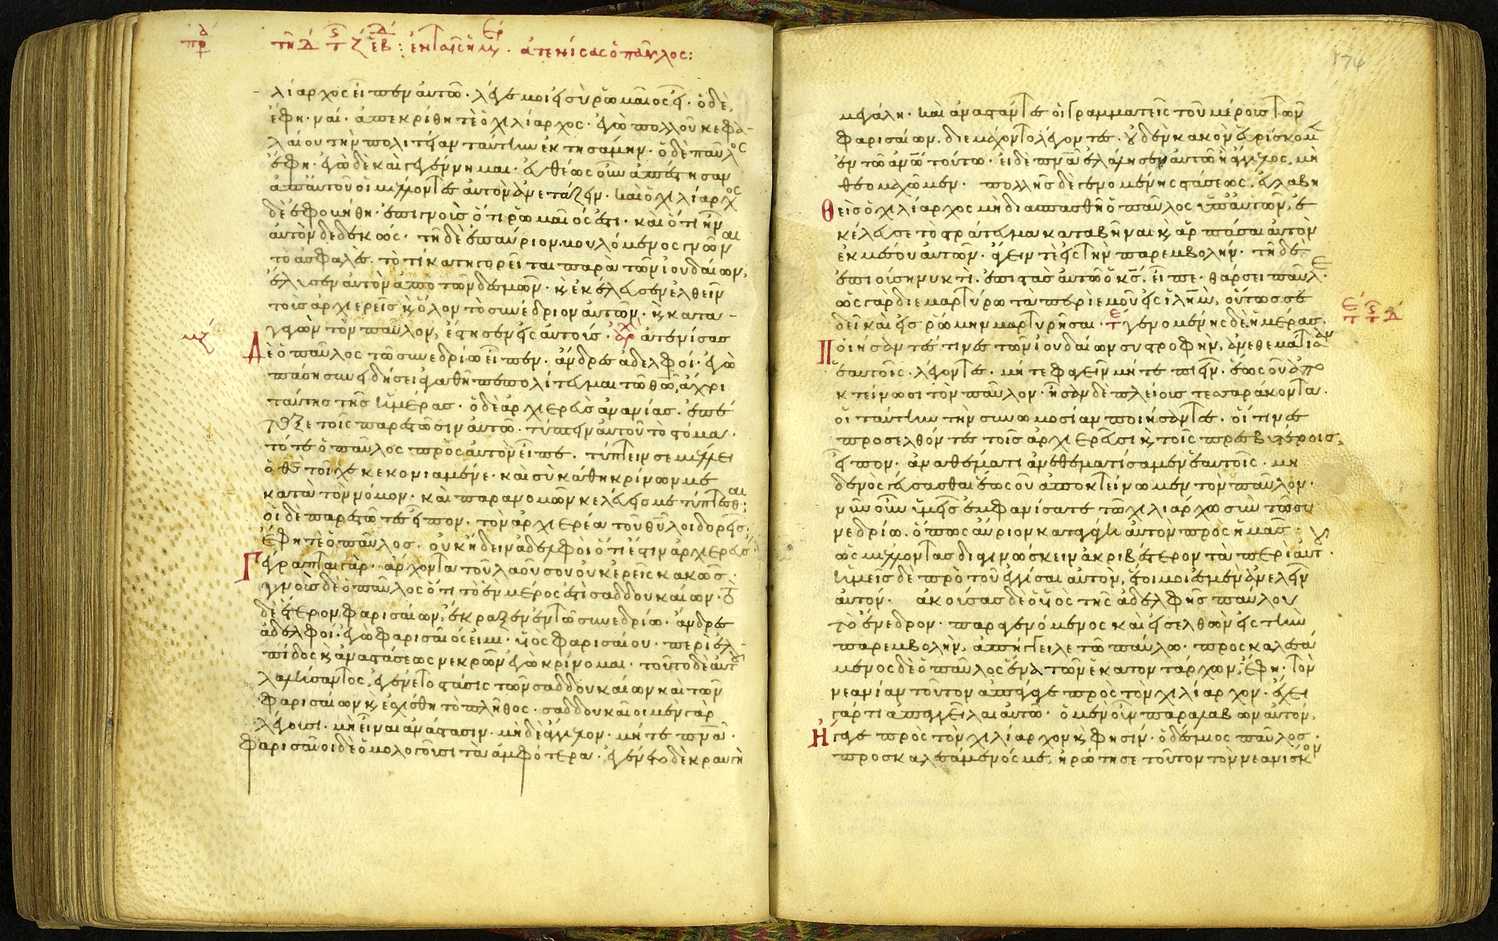 λίαρχος εἶπεν αὐτῶ· λέγε μοι εἰ σὺ ῥωμαῖος εἶ· ὁ δὲ
ἔφη· ναί· ἀπεκρίθη τὲ ὁ χιλίαρχος· ἐγὼ πολλοῦ κεφα
λαίου τὴν πολιτείαν ταύτην ἐκτησάμην· ὁ δὲ παῦλος
ἔφη· ἐγὼ δὲ καὶ γεγέννημαι· εὐθέως οὖν ἀπέστησαν
ἀπ' αὐτοῦ οἱ μέλλοντες αὐτὸν ἀνετάζειν· καὶ ὁ χιλίαρχος
δὲ ἐφοβήθη· ἐπιγνοὺς ὅτι ῥωμαῖός ἐστι· καὶ ὅτι ἦν
αὐτὸν δεδεκώς· τῆ δὲ ἐπαύριον βουλόμενος γνῶναι
τὸ ἀσφαλὲς τὸ τί κατηγορεῖται παρὰ τῶν ἰουδαίων,
ἔλυσεν αὐτὸν ἀπὸ τῶν δεσμῶν· κ ἐκέλευσεν ἐλθεῖν
τοὺς ἀρχιερεῖς κ ὅλον τὸ συνέδριον αὐτῶν· κ κατα
γαγὼν τὸν παῦλον, ἔστησεν εἰς αὐτούς· ἀτενίσας
Δὲ ὁ παῦλος τῶ συνεδρίω εἶπεν· ἄνδρες ἀδελφοί· ἐγὼ
πάση συνειδήσει ἀγαθῆ πεπολίτευμαι τῶ θῶ, ἄχρι
ταύτης τῆς ἡμέρας· ὁ δὲ ἀρχιερεὺς ἀνανίας· ἐπέ
ταξε τοῖς παρεστῶσιν αὐτῶ· τύπτειν αὐτοῦ τὸ στόμα·
τότε ὁ παῦλος πρὸς αὐτὸν εἶπε· τύπτειν σε μέλλει
ὁ θς τοῖχε κεκονιαμένε· καὶ σὺ κάθη κρίνων με
κατὰ τὸν νόμον· καὶ παρανομῶν κελεύεις με τύπτεσθαι;
οἱ δὲ παρεστῶτες εἶπον· τὸν ἀρχιερέα τοῦ θυ λοιδορεῖς;
ἔφη τὲ ὁ παῦλος· οὐκ ἤδειν ἀδελφοὶ ὅτι ἐστὶν ἀρχιερεύς
Γέγραπται γάρ· ἄρχοντα τοῦ λαοῦ σου οὐκ ἐρεῖς κακῶς·
γνοὺς δὲ ὁ παῦλος ὅτι τὸ ἓν μέρος ἐστὶ σαδδουκαίων· τὸ
δὲ ἕτερον φαρισαίων, ἔκραξεν ἐν τῶ συνεδρίω· ἄνδρες
ἀδελφοί· ἐγὼ φαρισαῖός εἰμι· υἱὸς φαρισαίου· περὶ ἐλ
πίδος κ ἀναστάσεως νεκρῶν ἐγὼ κρίνομαι· τοῦτο δὲ αὐτοῦ
λαλήσαντος, ἐγένετο στάσις τῶν σαδδουκαίων καὶ τῶν
φαρισαίων κ ἐσχίσθη τὸ πλῆθος· σαδδουκαῖοι μὲν γὰρ
λέγουσι· μὴ εἶναι ἀνάστασιν· μηδὲ ἄγγελον· μήτε πνα·
φαρισαῖοι δὲ ὁμολογοῦσι τὰ ἀμφότερα· ἐγένετο δὲ κραυγὴ
174
μεγάλη· καὶ ἀναστάντες οἱ γραμματεῖς τοῦ μέρους τῶν
φαρισαίων, διεμάχοντο λέγοντες· οὐδὲν κακὸν εὑρίσκομεν
ἐν τῶ ἀνω τούτω· εἰ δὲ πνα ἐλάλησεν αὐτῶ ἢ ἄγγελος, μὴ
θεομαχῶμεν· πολλῆς δὲ γενομένης στάσεως, εὐλαβη
Θεὶς ὁ χιλίαρχος μὴ διασπασθῆ ὁ παῦλος ὑπ' αὐτῶν, ἐ
κέλευσε τὸ στράτευμα καταβῆναι κ ἁρπάσαι αὐτὸν
ἐκ μέσου αὐτῶν· ἄγειν τὲ εἰς τὴν παρεμβολήν· τῆ δὲ
ἐπιούση νυκτὶ, ἐπιστὰς αὐτῶ ὁ κς, εἶπε· θάρσει παῦλε·
ὡς γὰρ διεμαρτύρω τὰ περὶ ἐμοῦ εἰς ιλημ, οὕτω σε
δεῖ καὶ εἰς ῥώμην μαρτυρῆσαι· γενομένης δὲ ἡμέρας·
Ποιήσαντές τινες τῶν ἰουδαίων συστροφήν, ἀνεθεμάτισαν
ἑαυτοὺς, λέγοντες· μήτε φαγεῖν μήτε πιεῖν· ἕως οὗ ἀπο
κτείνωσι τὸν παῦλον· ἦσαν δὲ πλείους τεσσαράκοντα·
οἱ ταύτην τὴν συνωμοσίαν ποιήσαντες· οἵτινες
προσελθόντες τοῖς ἀρχιερεῦσι κ τοῖς πρεσβυτέροις,
εἶπον· ἀναθέματι ἀνεθεματίσαμεν ἑαυτοὺς· μη
δενὸς γεύσασθαι ἕως οὗ ἀποκτείνωμεν τὸν παῦλον·
νῦν οὖν ὑμεῖς ἐμφανίσατε τῶ χιλιάρχω σὺν τῶ συ
νεδρίω· ὅπως αὔριον καταγάγη αὐτὸν πρὸς ἡμᾶς·
ὡς μέλλοντας διαγινώσκειν ἀκριβέστερον τὰ περὶ αὐτοῦ·
ἡμεῖς δὲ πρὸ τοῦ ἐγγίσαι αὐτὸν, ἕτοιμοί ἐσμεν ἀνελεῖν
αὐτόν· ἀκούσας δὲ ὁ υἱὸς τῆς ἀδελφῆς παύλου
τὸ ἔνεδρον· παραγενόμενος καὶ εἰσελθὼν εἰς τὴν
παρεμβολὴν, ἀπήγγειλε τῶ παύλω· προσκαλεσά
μενος δὲ ὁ παῦλος ἕνα τῶν ἑκατοντάρχων, ἔφη· τὸν
νεανίαν τοῦτον ἀπάγαγε πρὸς τὸν χιλίαρχον· ἔχει
γάρ τι ἀπαγγεῖλαι αὐτῶ· ὁ μὲν οὖν παραλαβὼν αὐτὸν,
Ἤγαγε πρὸς τὸν χιλίαρχον κ φησιν· ὁ δέσμιος παῦλος·
προσκαλεσάμενός με, ἠρώτησε τοῦτον τὸν νεανίσκον